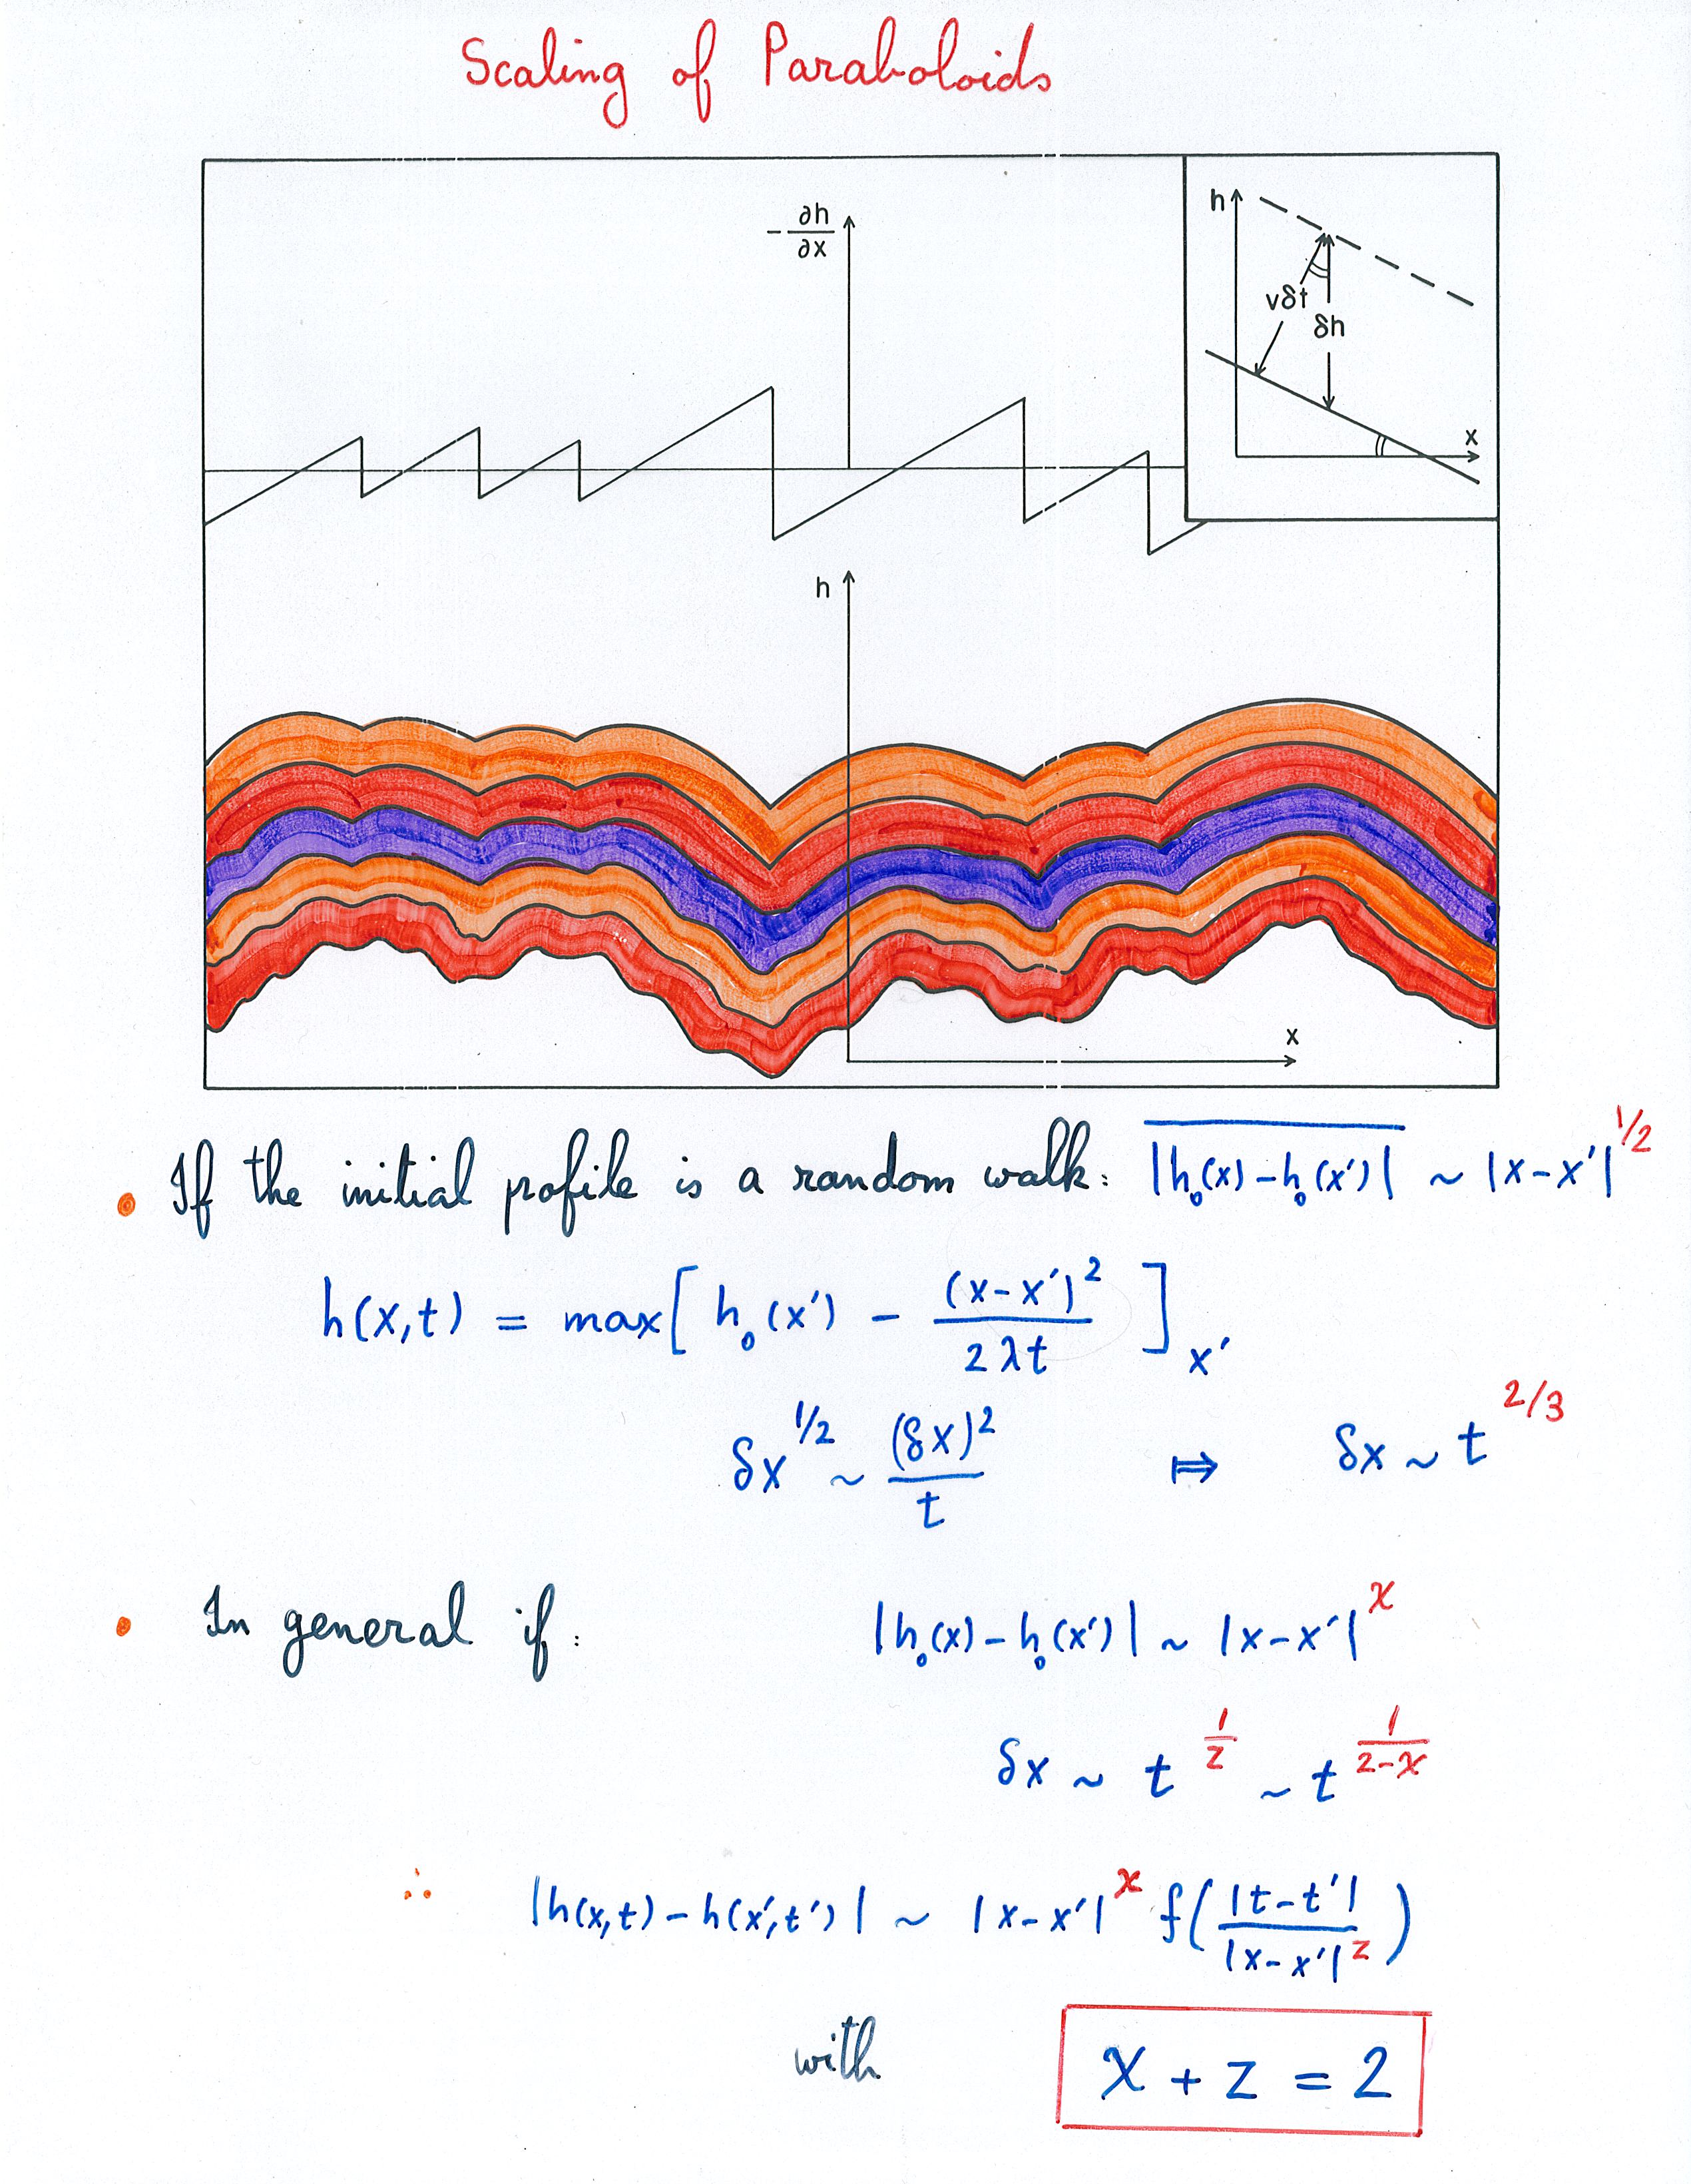 Scaling of Paraboloids
-∂h/∂x
h
vδt
δh
x
h
x
• If the initial profile is a random walk: |h₀(x) - h₀(x′)| ~ |x-x′|^1/2
h(x,t) = max[ h₀(x′) - (x-x′)²/2λt ]x′
δx^1/2 ~ (δx)²/t ⟹ δx ~ t^2/3
• In general if: |h₀(x) - h₀(x′)| ~ |x-x′|^χ
δx ~ t^1/z ~ t^1/(2-χ)
∴ |h(x,t) - h(x′,t′)| ~ |x-x′|^χ f(|t-t′|/|x-x′|^z)
with χ + z = 2